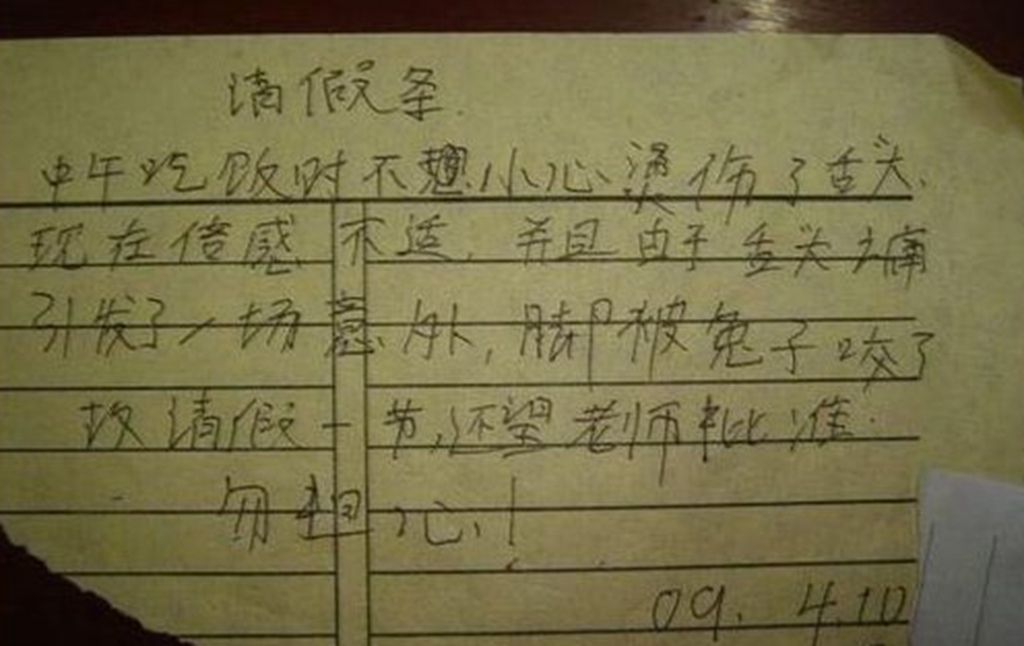 请假条.
中午吃饭时不想小心烫伤了舌头.
现在倍感不适,并且由于舌头之痛
引发了一场意外,脚被兔子咬了
故请假一节,还望老师批准.
勿担心!
09.4.10